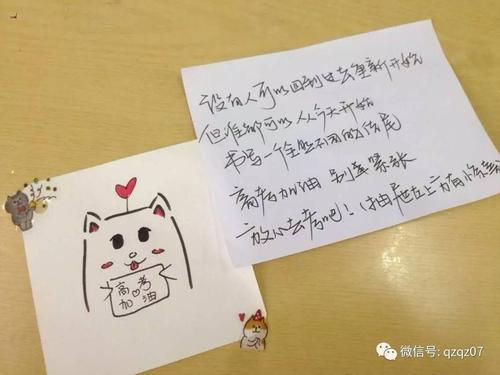 没有人可以回到过去重新开始
但谁都可以从今天开始
书写一个全然不同的结尾
高考加油 别连紧张
放心去考吧！(抽屉左上方有小惊喜
高考
加油
微信号: qzqz07